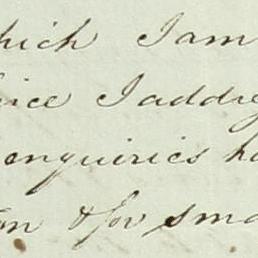 which I am
ice I addre
enquiries ha
on & for sma